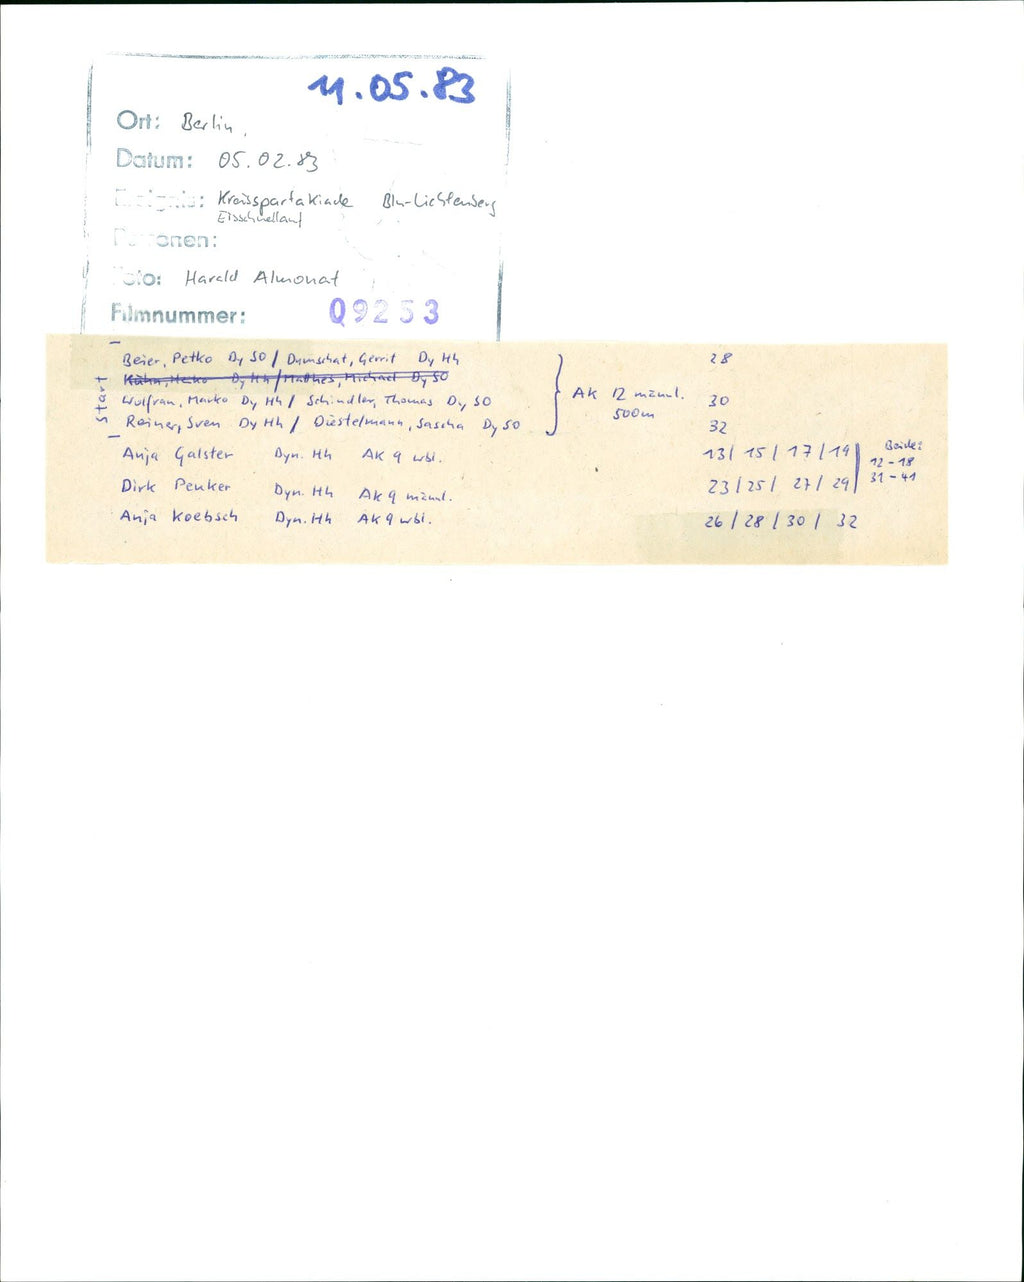 11.05.83
Ort: Berlin,
Datum: 05.02.83
Ereignis: Kreisspartakiade Bln-Lichtenberg
Eisschnellauf
Personen:
Foto: Harald Almonat
Filmnummer: Q9253
Start
Beier, Petko Dy SO / Dumschat, Gerrit Dy Hh 28
Kühn, Heiko Dy Hh / Mathes, Michael Dy SO
AK 12 männl.
500m
Wolfran, Marko Dy Hh / Schindler, Thomas Dy SO 30
Reiner, Sven Dy Hh / Diestelmann, Sascha Dy SO 32
Anja Galster Dyn. Hh AK 9 wbl. 13 / 15 / 17 / 19
Dirk Penker Dyn. Hh AK 9 männl. 23 / 25 / 27 / 29
Beide:
12 - 18
31 - 41
Anja Koebsch Dyn. Hh AK 9 wbl. 26 / 28 / 30 / 32